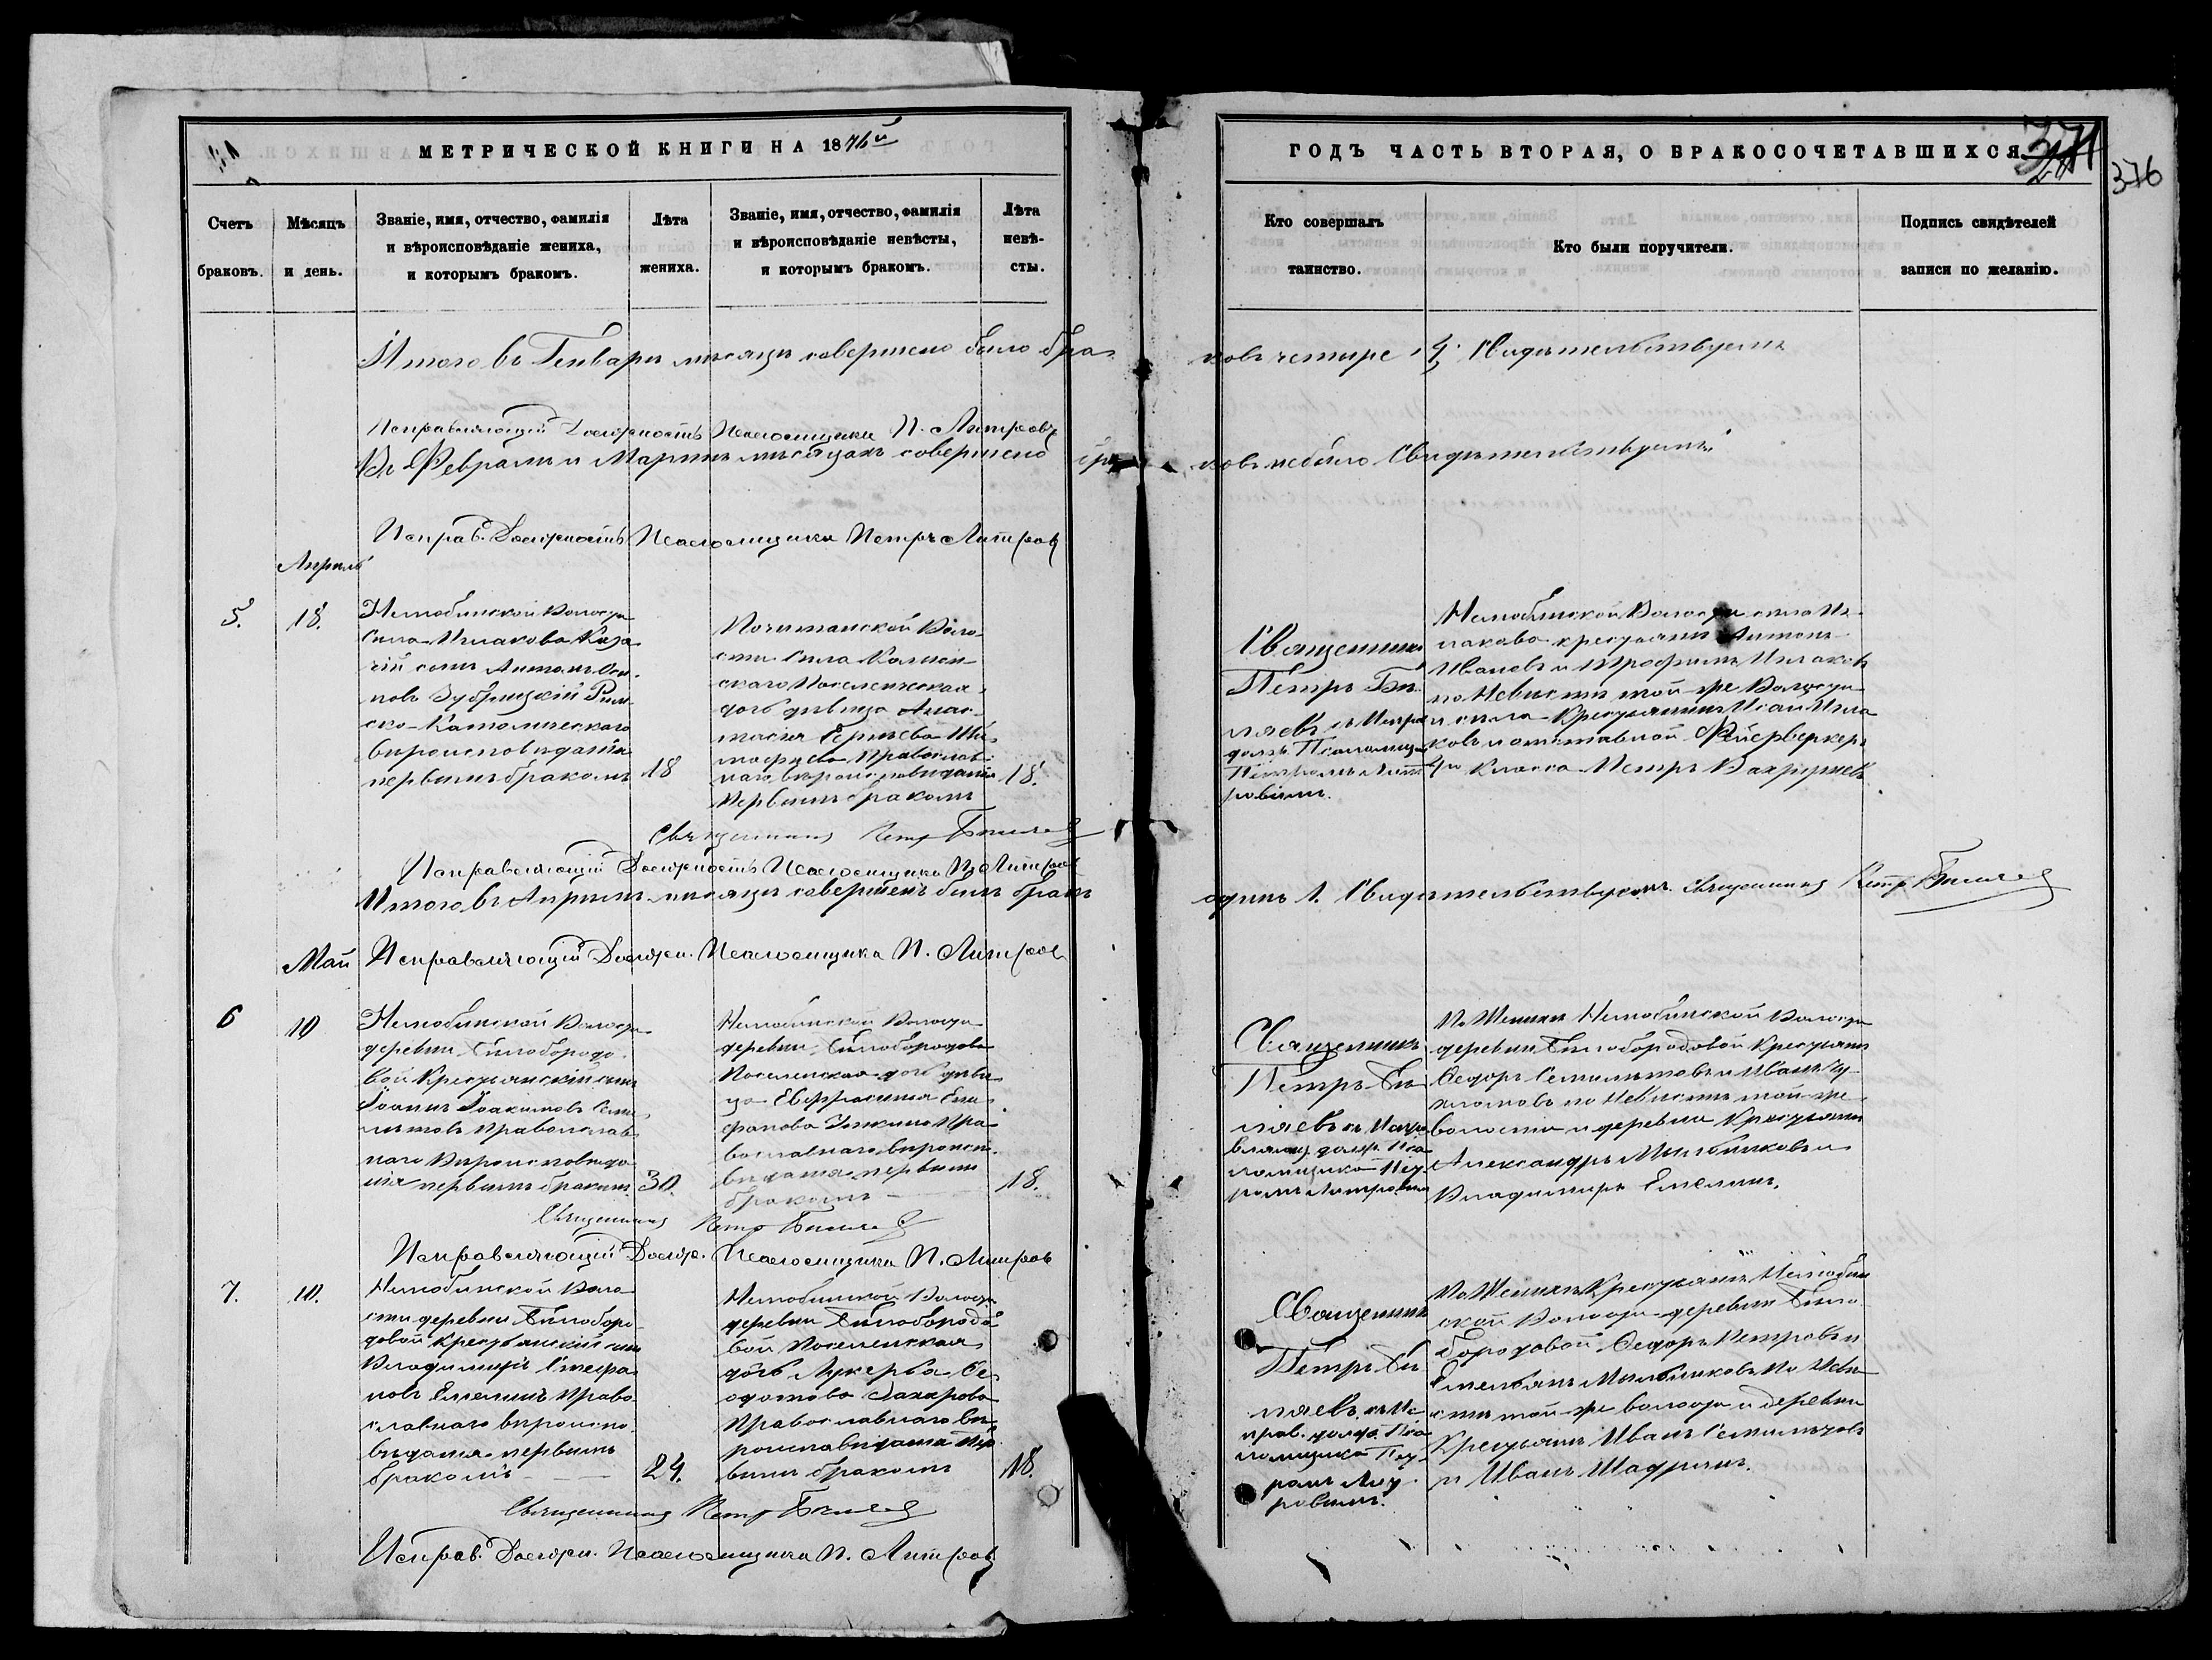 МЕТРИЧЕСКОЙ КНИГИ НА 1876й
ГОДЪ ЧАСТЬ ВТОРАЯ, О БРАКОСОЧЕТАВШИХСЯ
376
Счетъ браковъ.
Мѣсяцъ и день.
Званіе, имя, отчество, фамилія
и вѣроисповѣданіе жениха,
и которымъ бракомъ.
Лѣта
жениха.
Званіе, имя, отчество, фамилія
и вѣроисповѣданіе невѣсты,
и которымъ бракомъ.
Лѣта
невѣ-
сты.
Кто совершалъ
таинство.
Кто были поручители.
Подпись свидѣтелей
записи по желанію.
Итого въ Генварѣ мѣсяцѣ совершено было бра
ковъ четыре 4. Свидѣтельствуемъ
Исправляющій Должность Псаломщика П. Литровъ
Въ Февралѣ и Мартѣ мѣсяцахъ совершено бра
ковъ небыло Свидѣтельствуемъ
Исправ. Должность Псаломщика Петръ Литровъ
Апрѣль
5.
18.
Нелюбинской Волости
Села Ипакова Каза
чій сынъ Антонъ Оси
повъ Зубрицкій Рим
ско-Католическаго
вѣроисповѣданія
первымъ бракомъ
18
Почитанской Воло
сти Села
скаго Поселенческая
дочь дѣвица Анас
тасія Сергѣева Ти
мофѣева Православ
наго вѣроисповѣданія
Первымъ бракомъ
18.
Священникъ
Петръ Бѣ
ляевъ съ Исправ
долж. Псаломщ
Петромъ Лит
ровымъ.
Нелюбинской Волости села Ип
лакова крестьяни Антонъ
Ивановъ и Трофимъ
по Невѣстѣ той-же Волости
и села Крестьянинъ Исай
ковъ и отставной Фейерверкеръ
4го Класса Петръ Вахрушевъ
Священникъ Петръ Бѣляевъ
Исправляющій Должность Псаломщика П. Литровъ
Итого въ Апрѣлѣ мѣсяцѣ совершенъ былъ бракъ
одинъ 1. Свидѣтельствуемъ. Священникъ Петръ Бѣляевъ
Май
Исправляющій Должн. Псаломщика П. Литровъ
6
10
Нелюбинской Волости
деревни Бѣлобородо
вой Крестьянскій сынъ
Іоаннъ Іоакимовъ Семи
лѣтовъ Православ
наго Вѣроисповѣда
нія первымъ бракомъ
30.
Нелюбинской Волости
деревни Бѣлобородовой
Поселенская дочь дѣви
ца Евфросинія Епи
фанова Пра
вославнаго вѣроисп
вѣданія первымъ
бракомъ
18.
Священникъ
Петръ Бѣ
ляевъ съ Испра
вляющ. долж. Пса
ломщика Пет
ромъ Литровымъ
По Женихѣ Нелюбинской Волости
деревни Бѣлобородовой Крестьяни
Федоръ Семилѣтовъ и Иванъ Чу
по Невѣстѣ той-же
волости и деревни Крестьяни
Александръ Мыльниковъ и
Владимиръ Емелинъ.
Священникъ Петръ Бѣляевъ
Исправляющій Долж. Псаломщика П. Литровъ
7.
10.
Нелюбинской Воло
сти деревни Бѣлоборо
довой Крестьянскій сынъ
Владимиръ Стефа
новъ Емелинъ Право
славнаго вѣроиспо
вѣданія первымъ
бракомъ
24.
Нелюбинской Волости
деревни Бѣлобородо
вой Поселенская
дочь Лукерья Ѳе
одотова Захарова
Православнаго вѣ
роисповѣданія пер
вымъ бракомъ
18.
Священникъ
Петръ Бѣ
ляевъ съ Ис
прав. долж. Пса
ломщика Пет
ромъ Лит
ровымъ.
По Женихѣ Крестьяни Нелюбин
ской Волости деревни Бѣло
бородовой Федоръ Петровъ и
Емельянъ Мыльниковъ По Невѣ
стѣ той-же волости и деревни
Крестьяни Иванъ Семилѣтовъ
и Иванъ Шадринъ.
Священникъ Петръ Бѣляевъ
Исправ. Должн. Псаломщика П. Литровъ